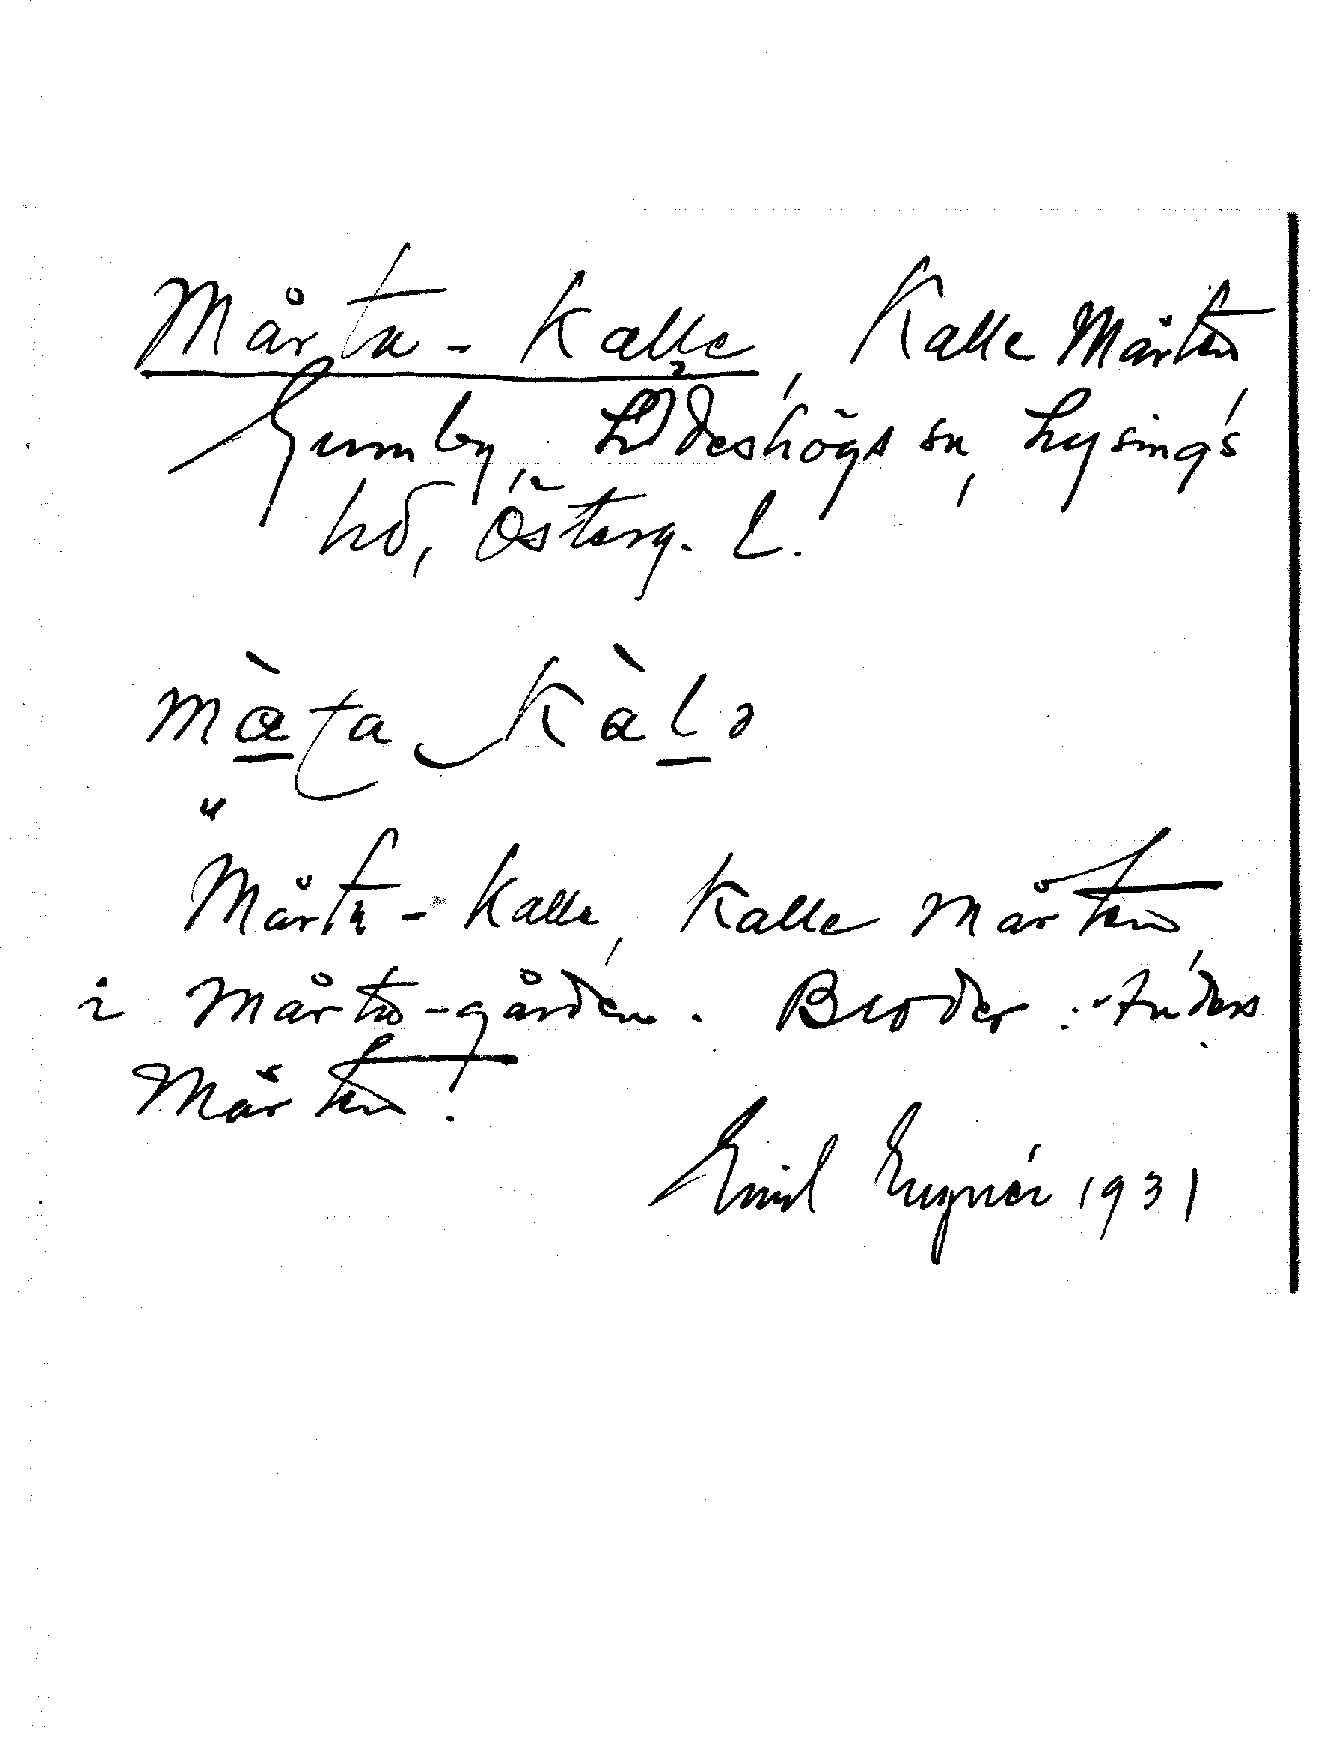 Mårta-Kalle, Kalle Mårten
Gumby, Ödeshögs sn, Lysings
hd, Österg. L.
màta Kàlə
"
Mårta-Kalle, Kalle Mårten,
i Mårts-gården. Broder: Anders
Mårten.
Emil 1931